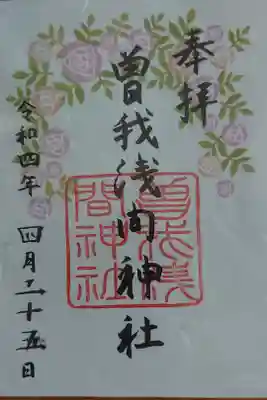 奉拝
曽我浅间神社
曽我浅間神社
令和四年 四月二十五日